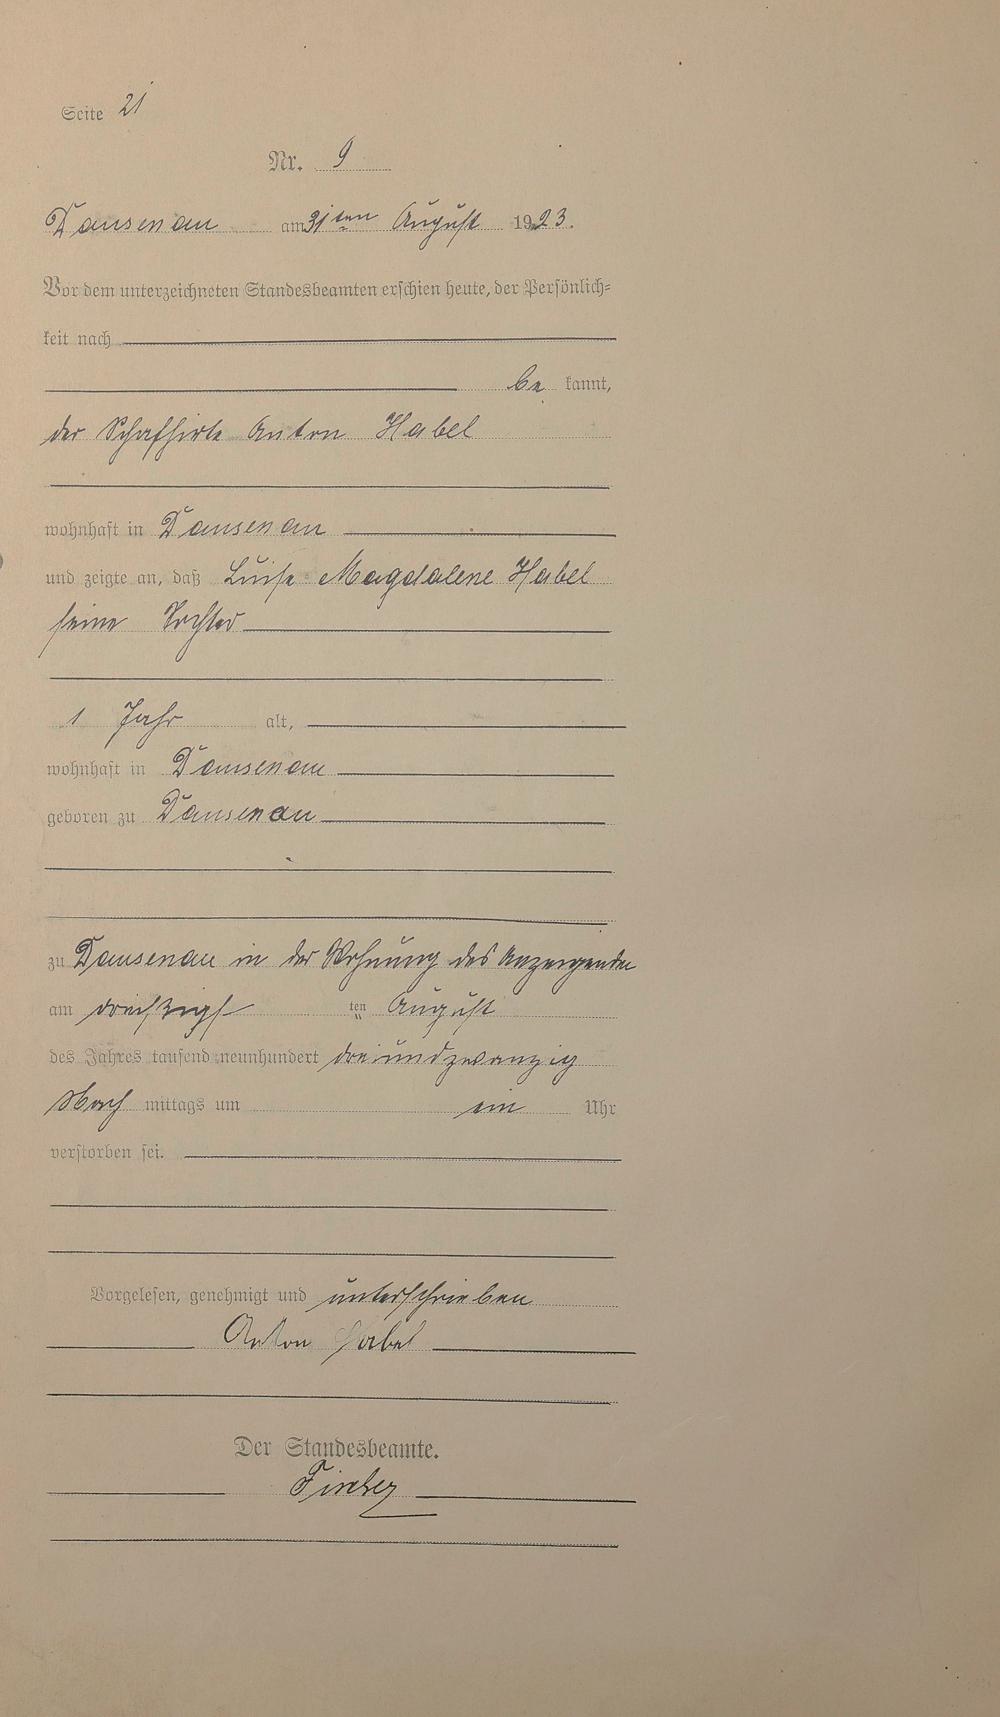 Seite 21
Nr. 9
Dausenau am 31ten August 1923.
Vor dem unterzeichneten Standesbeamten erschien heute, der Persönlich-
keit nach
be kannt,
der Schafhirte Anton Habel
wohnhaft in Dausenau
und zeigte an, daß Luise Magdalene Habel
seine Tochter
1 Jahr alt,
wohnhaft in Dausenau
geboren zu Dausenau
zu Dausenau in der Wohnung des Anzeigenden
am dreißzigst ten August
des Jahres tausend neunhundert dreiundzwanzig
Nach mittags um ein Uhr
verstorben sei.
Vorgelesen, genehmigt und unterschrieben
Anton Habel
Der Standesbeamte.